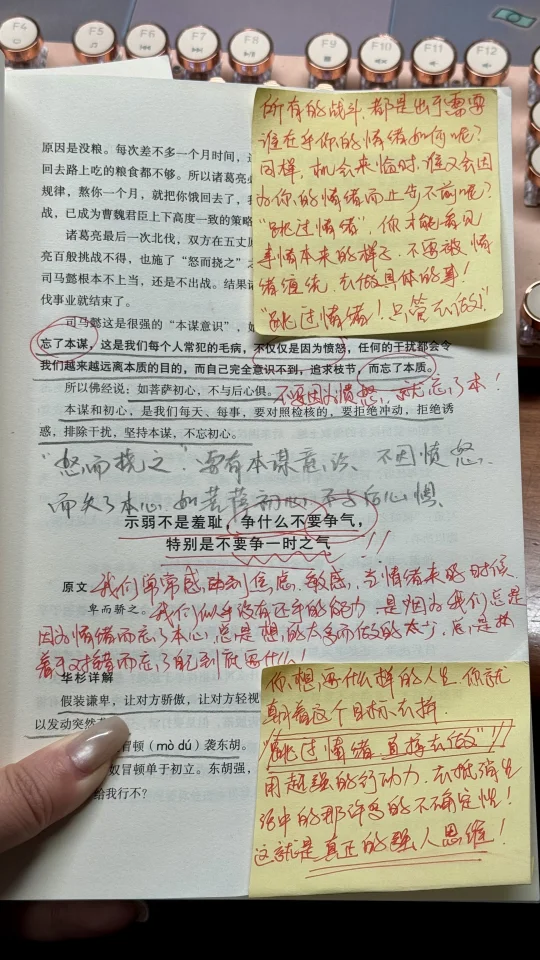 F4
F5
F6
F7
F8
F9
F10
F11
F12
原因是没粮。每次差不多一个月时间，
回去路上吃的粮食都不够。所以诸葛亮
规律，熬你一个月，就把你饿回去了，
战，已成为曹魏君臣上下高度一致的策略
诸葛亮最后一次北伐，双方在五丈
亮百般挑战不得，也施了“怒而挠之”之
司马懿根本不上当，还是不出战。结果
伐事业就结束了。
司马懿这是很强的“本谋意识”，
忘了本谋，这是我们每个人常犯的毛病，不仅仅是因为愤怒，任何的干扰都会令
我们越来越远离本质的目的，而自己完全意识不到，追求枝节，而忘了本质。
所以佛经说：如菩萨初心，不与后心俱。
不要因为愤怒，就忘了本！
本谋和初心，是我们每天、每事，要对照检核的，要拒绝冲动，拒绝诱
惑，排除干扰，坚持本谋，不忘初心。
“怒而挠之”：要有本谋意识、不因愤怒，
而失了本心，如菩萨初心，不与后心惧、
示弱不是羞耻，争什么不要争气，
特别是不要争一时之气
原文
我们常常感到焦虑、敏感，当情绪来的时候，
卑而骄之。
我们似乎没有还手的能力，是因为我们总是
因为情绪而忘了本心，总是想的太多而做的太少，总是执
着于对错而忘了自己到底要什么！
华杉详解
假装谦卑，让对方骄傲，让对方轻视
以发动突然
冒顿（mò dú）袭东胡。
奴冒顿单于初立。东胡强，
给我行不？
所有的战斗，都是出于需要
谁在乎你的情绪如何呢？
同样，机会来临时，谁又会因
为你的情绪而止步不前呢？
“跳过情绪”，你才能看见
事情本来的样子，不要被情
绪缠绕，去做具体的事！
“跳过情绪！只管去做！”
你想要什么样的人生，你就
朝着这个目标去拼
“跳过情绪，直接去做”！！
用超强的行动力，去抵消生
活中的那许多的不确定性！
这就是真正的强人思维！